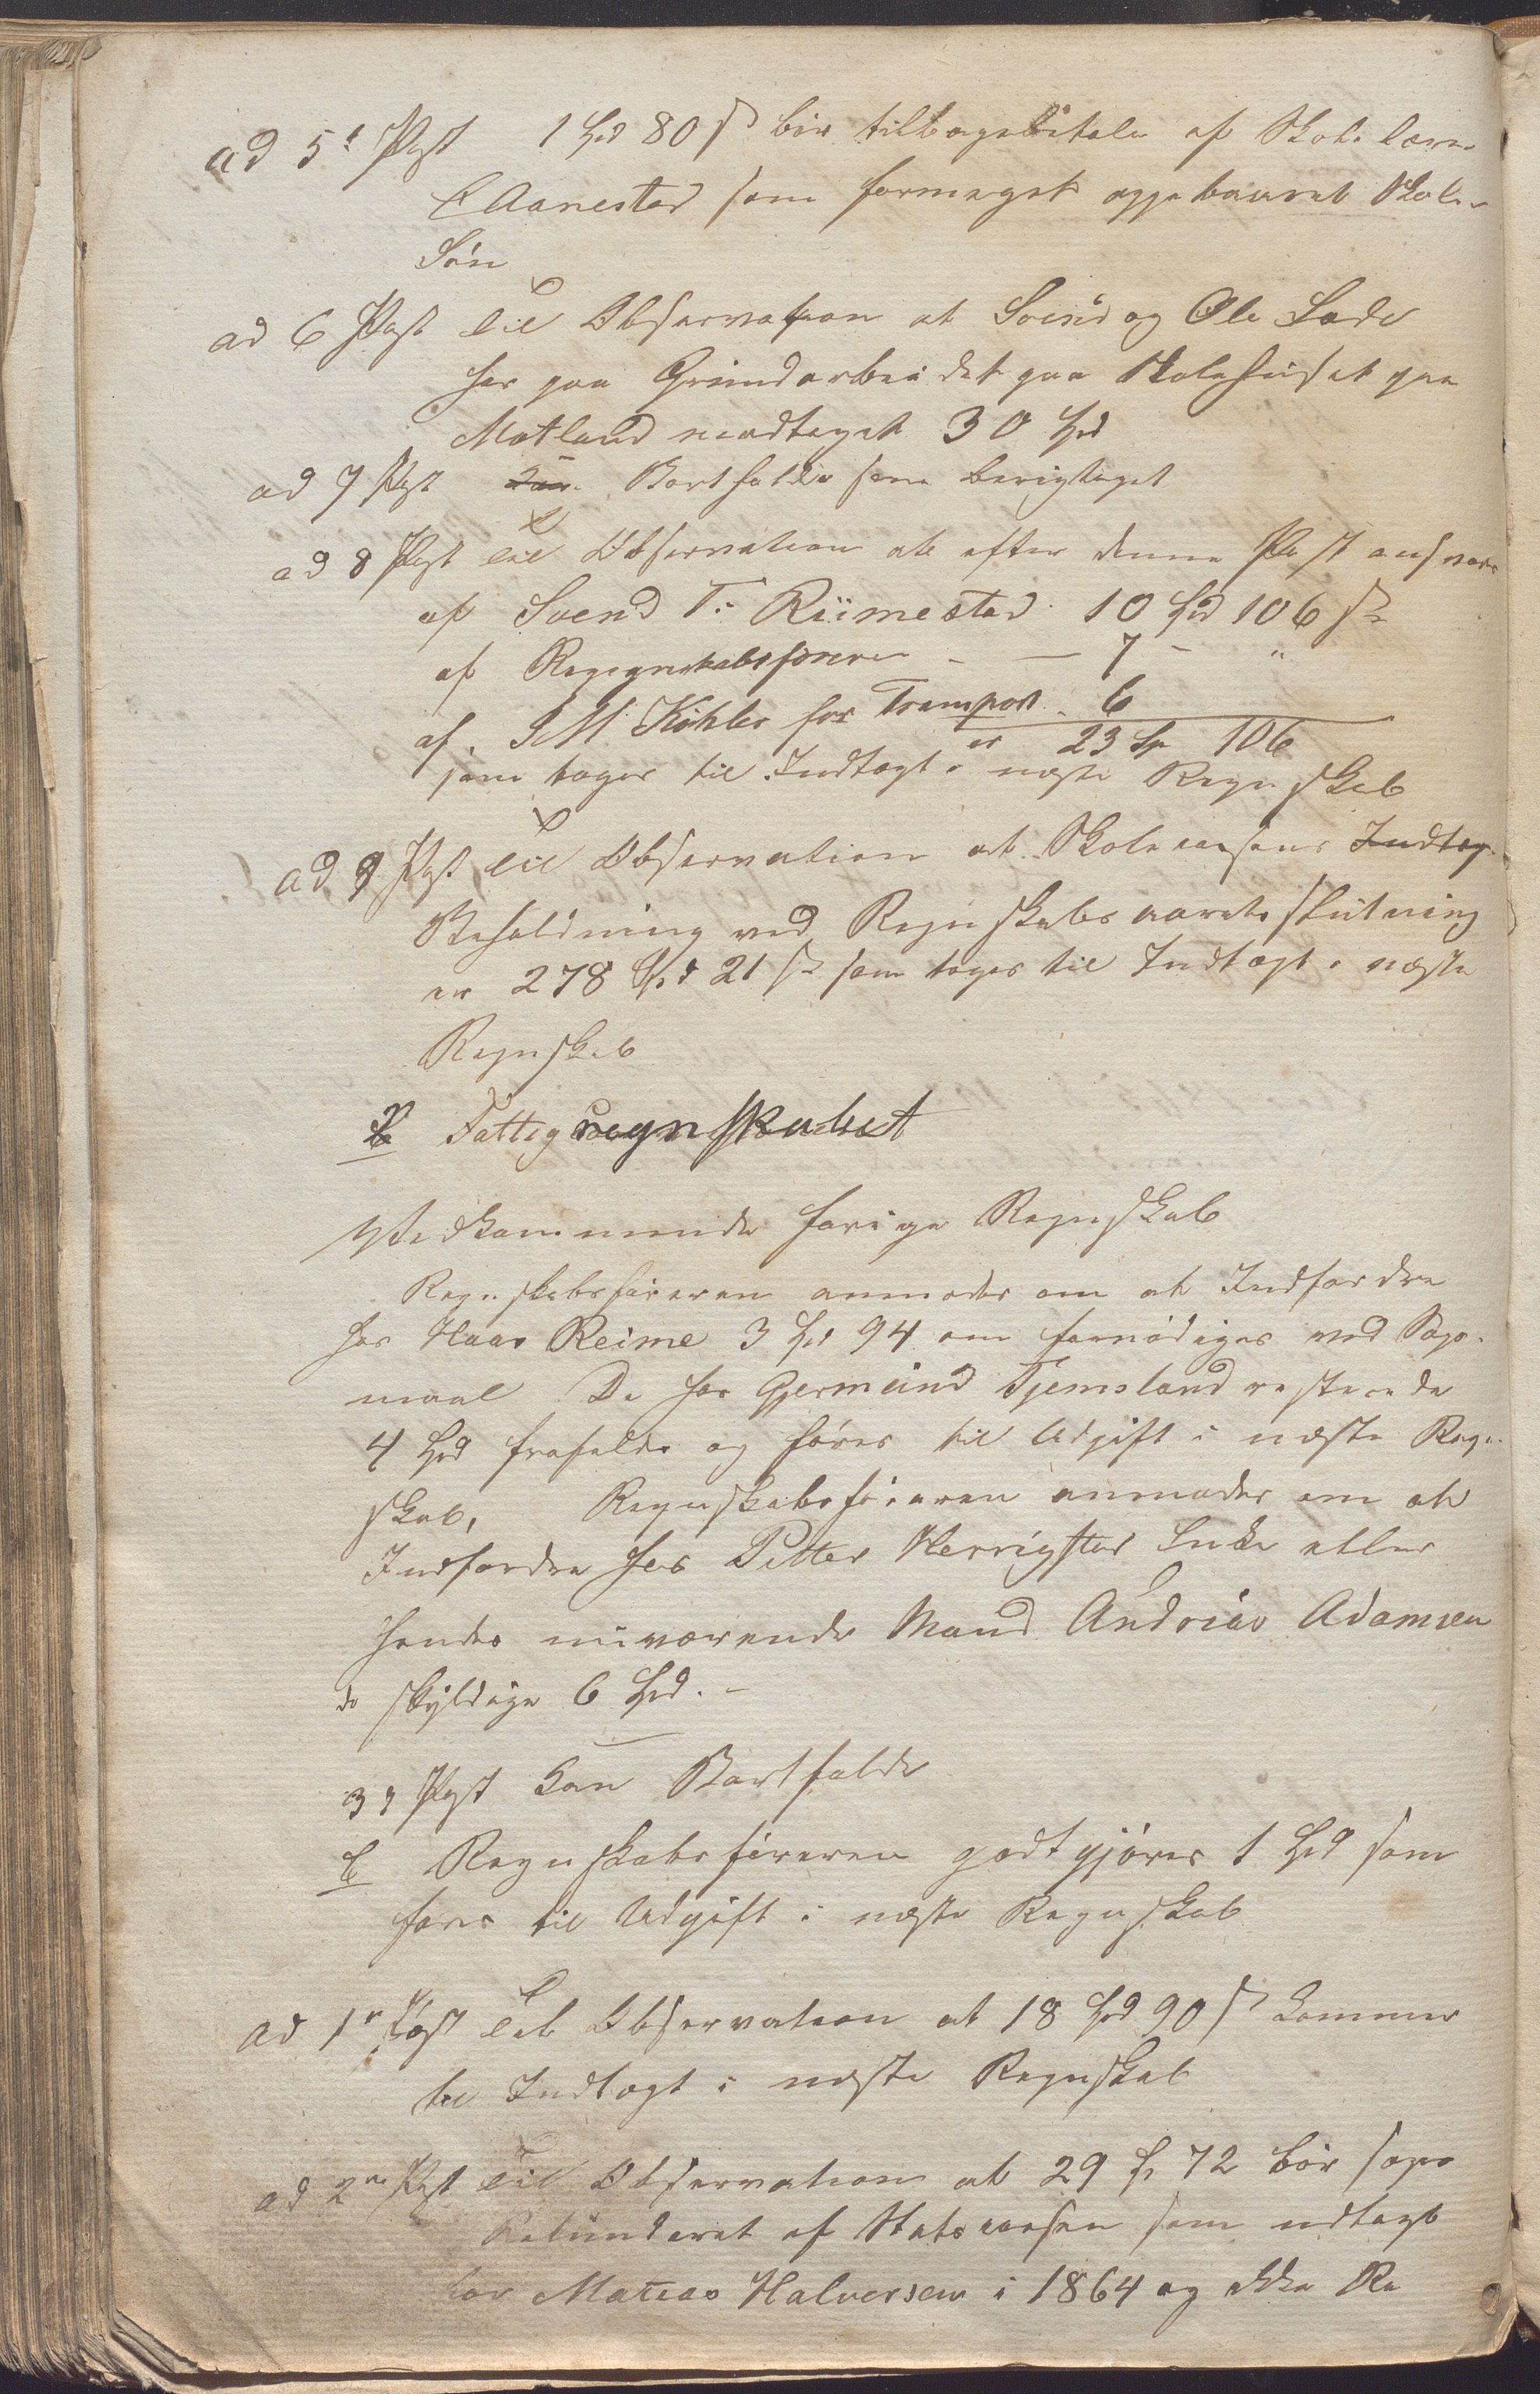 ad 5t Post 1 Spd 80 s bør tilbagebetale af Skolelærer
E Aanestad som formeget oppebaaret Skole-
Løn
ad 6 Post Til Observation at Svend og Ole Lode
har paa Grundarbeidet paa Skolehuset paa
Motland modtaget 30 Spd
ad 7 Post Kan Bortfalde som berigtiget
ad 8 Post Til Observation at efter denne Post ansvares
af Svend T. Riimestad 10 Spd 106 s
af Regegnskabsføreren - — 7 - "
af. I M Køhler for Transport - 6
er 23 Sp 106
som tages til Indtægt i næste Regnskab
ad 9 Post Til Observation at Skolecassens Indtæg
Beholdning ved Regnskabsaarets slutning
er 278 Spd 21 s som tages til Indtægt i næste
Regnskab
Fattigregnskabet
Vedkommende forige Regnskab
Regnskabsføreren anmodes om at Indfordre
hos Haav Reime 3 Spd 94 om fornødiges ved Søgs-
maal De hos Gjermund Tjemsland resterende
4 Spd frafaldes og føres til Udgift i næste Regn-
skab, Regnskabsføreren anmodes om at
Indfordre hos Petter Herrigstad Enke eller
hendes nuværende Mand Andreas Adamsen
de skyldige 6 Spd. -
3die Post Kan Bortfalde
b Regnskabsføreren godtgjøres 1 Spd som
føres til Udgift i næste Regnskab
ad 1ste Post Til Observation at 18 Spd 90 s kommer
til Indtægt i næste Regnskab
ad 2den Post Til Observation at 29 Sp 72 bør søges
Refunderet af Statscassen som udlagt
for Matias Halversen i 1864 og ikke Re